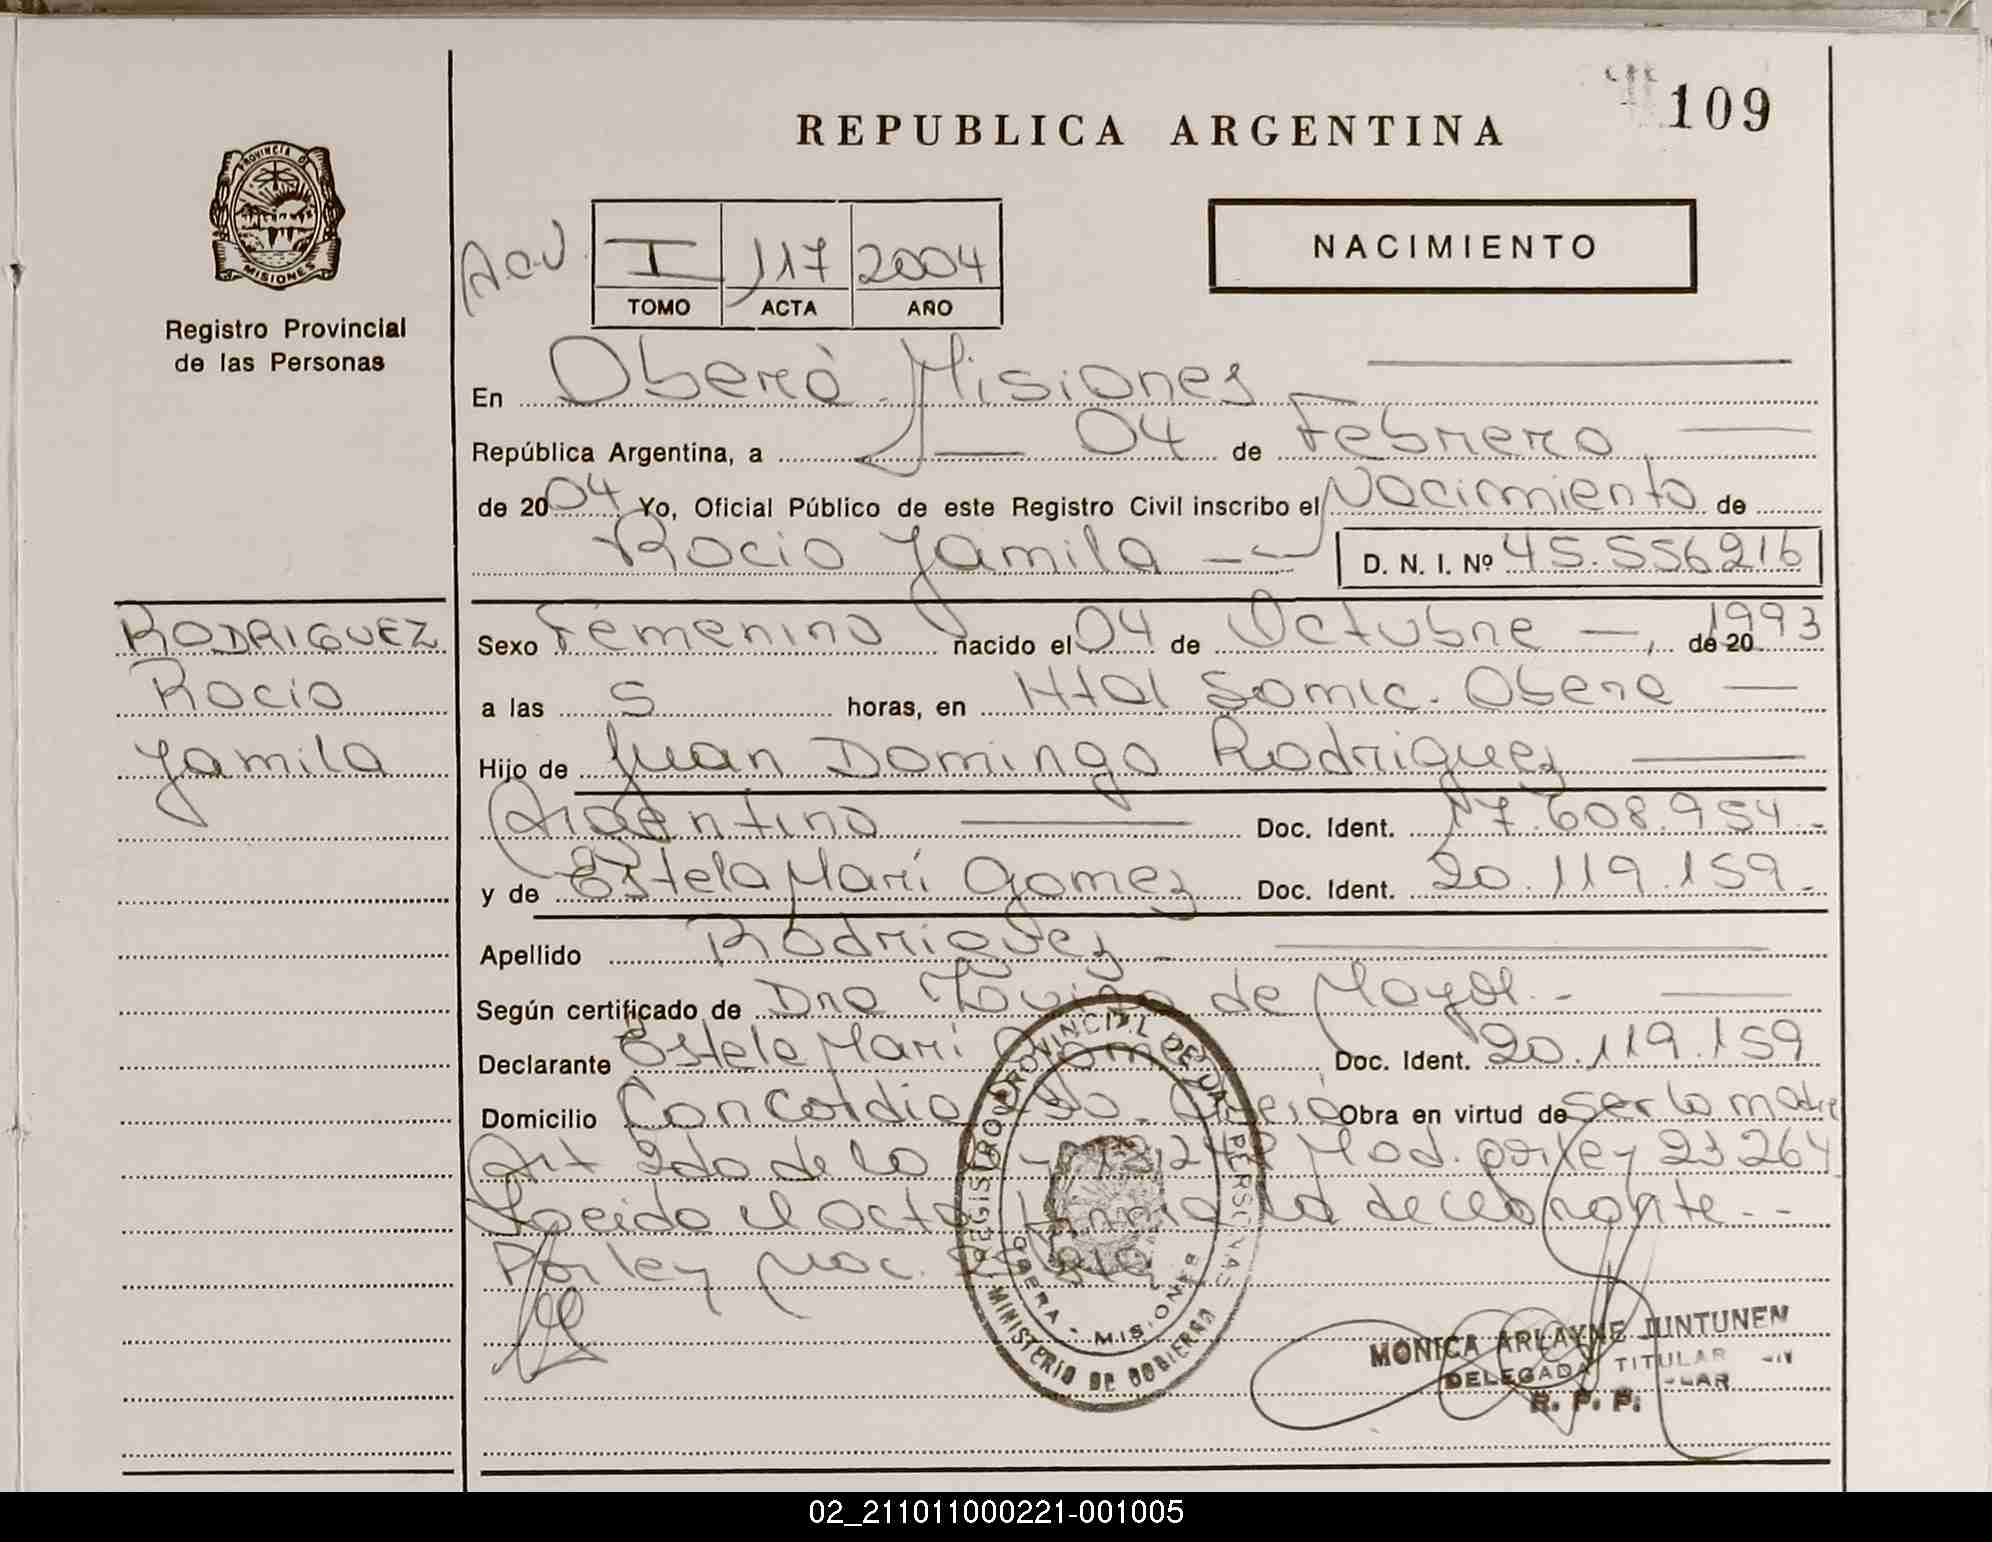 109
REPUBLICA ARGENTINA
PROVINCIA DE
MISIONES
Registro Provincial
de las Personas
NACIMIENTO
I 117 2004
TOMO ACTA AÑO
En Oberá Misiones
República Argentina, a 04 de Febrero
de 2004 Yo, Oficial Público de este Registro Civil inscribo el Nacimiento de
Rocio Yamila D. N. I. Nº 45.556216
RODRIGUEZ
Rocio
Yamila
Sexo Femenino nacido el 04 de Octubre de 20 1993
a las 5 horas, en Htal Samic. Obera
Hijo de Juan Domingo Rodriguez
Argentino Doc. Ident. 17.608.954
y de Estela Marí Gomez Doc. Ident. 20.119.159
Apellido Rodriguez
Según certificado de Dra de Mayol
Declarante Estela Marí Gomez Doc. Ident. 20.119.159
Domicilio Concordia Obra en virtud de ser la madre
Art 2do de la Mod. por Ley 23264
Leido el acta la
Por Ley
REGISTRO PROVINCIAL DE LAS PERSONAS
OBERA - MISIONES
MINISTERIO DE GOBIERNO
MONICA ARLAYNE JUNTUNEN
DELEGADA TITULAR
R. P. P.
02_211011000221-001005